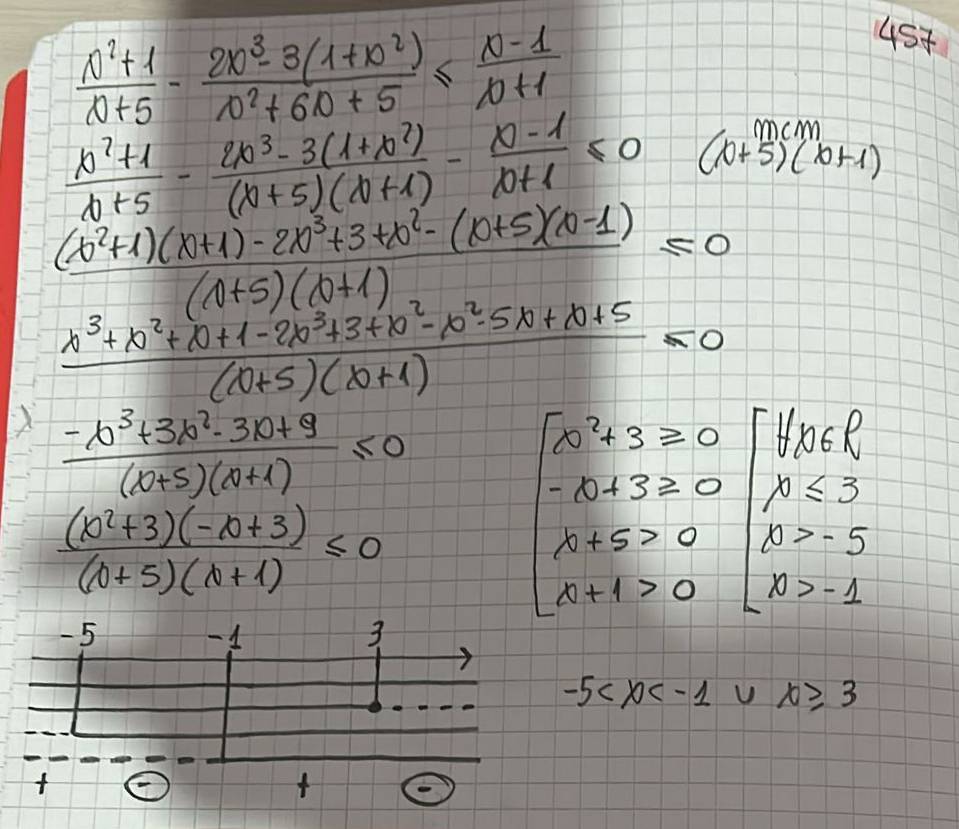 457
x²+1/x+5 - 2x³-3(1+x²)/x²+6x+5 ≤ x-1/x+1
x²+1/x+5 - 2x³-3(1+x²)/(x+5)(x+1) - x-1/x+1 ≤ 0 mcm (x+5)(x+1)
(x²+1)(x+1)-2x³+3+x²-(x+5)(x-1)/(x+5)(x+1) ≤ 0
x³+x²+x+1-2x³+3+x²-x²-5x+x+5/(x+5)(x+1) ≤ 0
-x³+3x²-3x+9/(x+5)(x+1) ≤ 0
(x²+3)(-x+3)/(x+5)(x+1) ≤ 0
[x²+3 ≥ 0 [∀x∈R
-x+3 ≥ 0 x ≤ 3
x+5 > 0 x > -5
x+1 > 0 x > -1
-5 -1 3
+ - + -
-5<x<-1 ∪ x ≥ 3